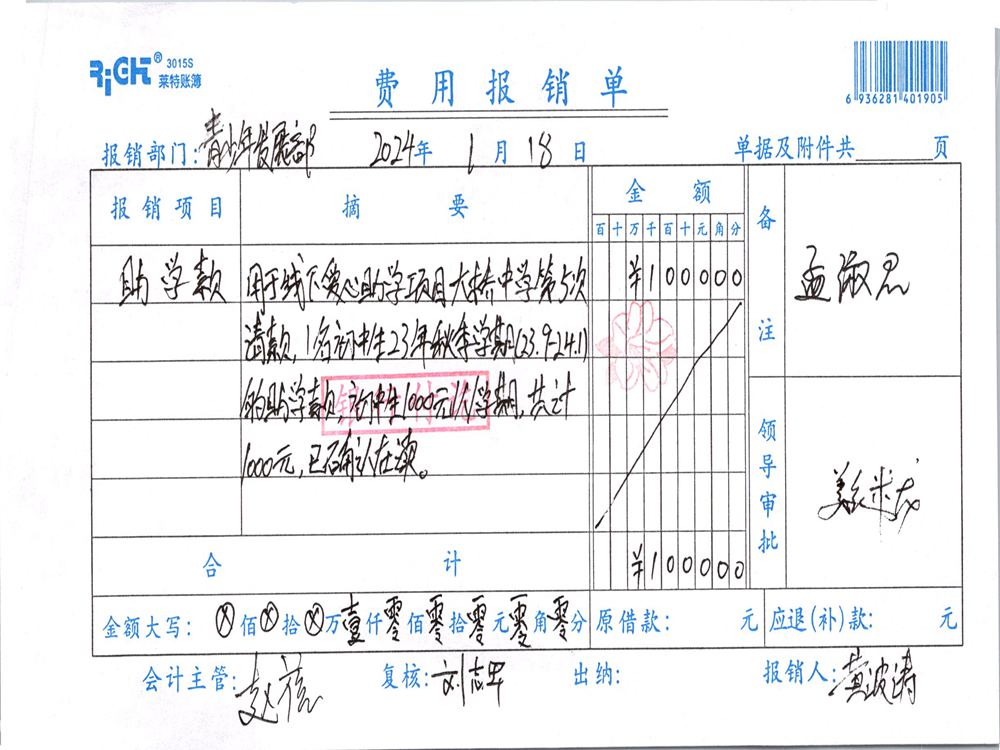 RiGHT® 3015S
莱特账簿
费用报销单
6 936281 401905
报销部门：青少年发展部 2024年 1月 18日 单据及附件共 页
报销项目 摘要 金额 备注
百十万千百十元角分
助学款 用于线下爱心助学项目大桥中学第5次 ¥100000
请款，1名初中生23年秋季学期(23.9-24.1)
的助学款，初中生1000元/人/学期，共计
1000元，已确认在读。
孟淑思
领导审批
合计 ¥100000
金额大写：ⓧ佰ⓧ拾ⓧ万壹仟零佰零拾零元零角零分 原借款： 元 应退(补)款： 元
会计主管： 复核：刘志军 出纳： 报销人：黄波涛